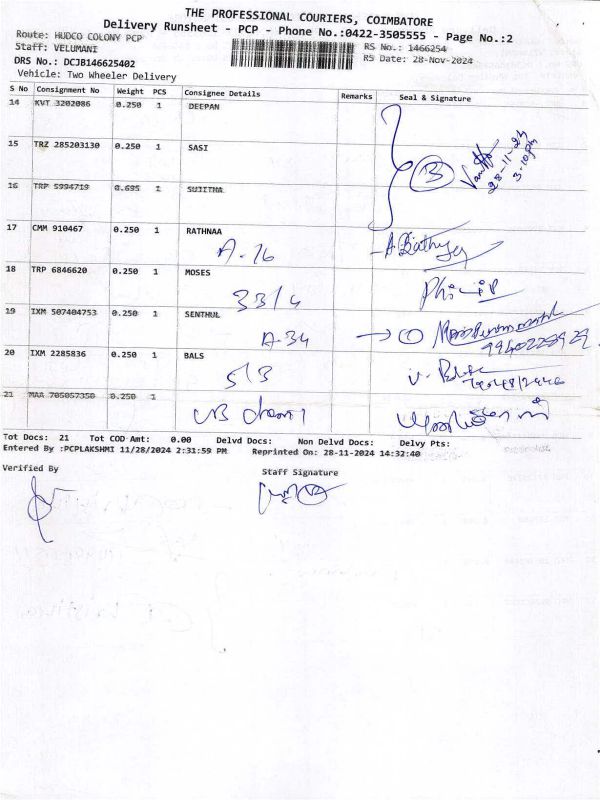 THE PROFESSIONAL COURIERS, COIMBATORE
Delivery Runsheet - PCP - Phone No.:0422-3505555 - Page No.:2
Route: HUDCO COLONY PCP
RS No.: 1466254
Staff: VELUMANI
RS Date: 28-Nov-2024
DRS No.: DCJB146625402
Vehicle: Two Wheeler Delivery
S No Consignment No Weight PCS Consignee Details Remarks Seal & Signature
14 KVT 3202086 0.250 1 DEEPAN
15 TRZ 285203130 0.250 1 SASI
3
28-11-24
3.10pm
16 TRP 5994719 0.695 1 SUJITHA
17 CMM 910467 0.250 1 RATHNAA
A-76
18 TRP 6846620 0.250 1 MOSES
33/4
19 IXM 507404753 0.250 1 SENTHUL
A-34
20 IXM 2285836 0.250 1 BALS
5/3
21 MAA 705057350 0.250 1
Tot Docs: 21 Tot COD Amt: 0.00 Delvd Docs: Non Delvd Docs: Delvy Pts:
Entered By :PCPLAKSHMI 11/28/2024 2:31:59 PM Reprinted On: 28-11-2024 14:32:40
Verified By
Staff Signature